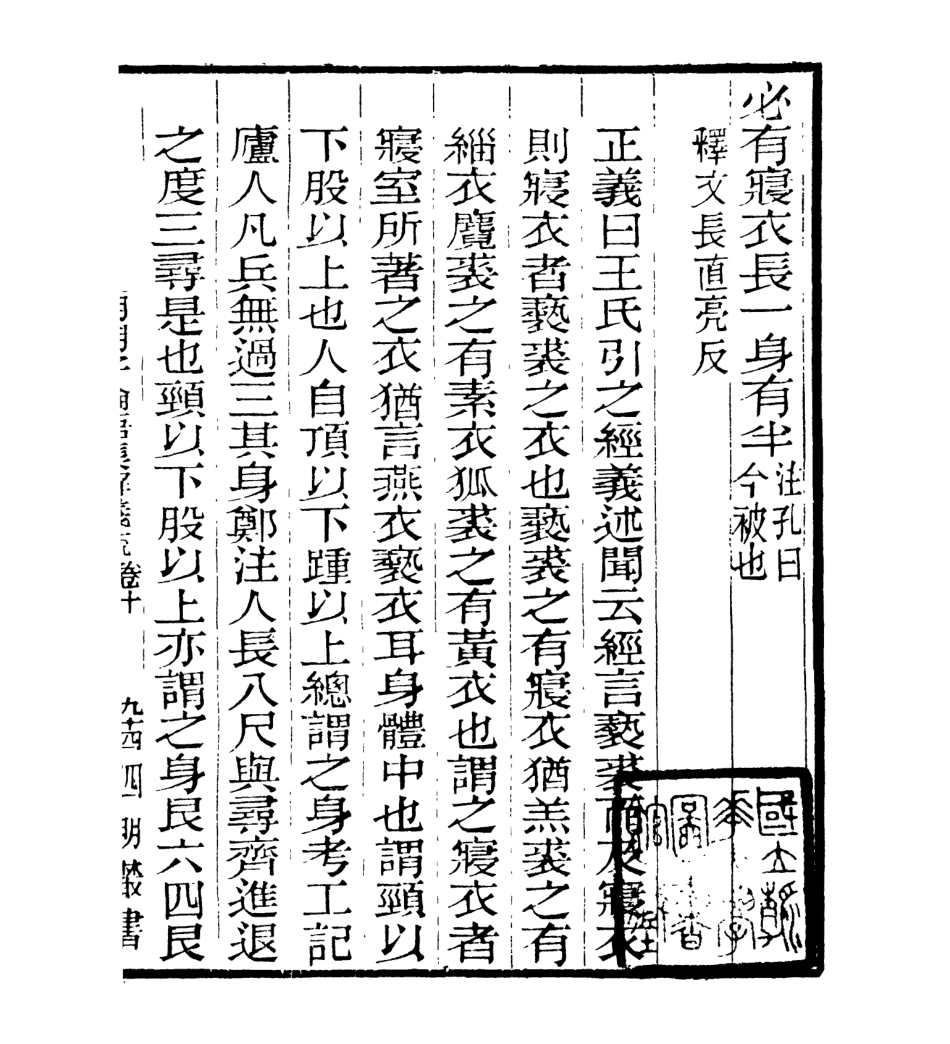 必有寢衣長一身有半注孔曰今被也
釋文長直亮反
正義曰王氏引之經義述聞云經言褻裘而及寢衣
則寢衣者褻裘之衣也褻裘之有寢衣猶羔裘之有
緇衣麑裘之有素衣狐裘之有黃衣也謂之寢衣者
寢室所著之衣猶言燕衣褻衣耳身體中也謂頸以
下股以上也人自頂以下踵以上總謂之身考工記
廬人凡兵無過三其身鄭注人長八尺與尋齊進退
之度三尋是也頸以下股以上亦謂之身艮六四艮
卷十 九十四 四明叢書
國立